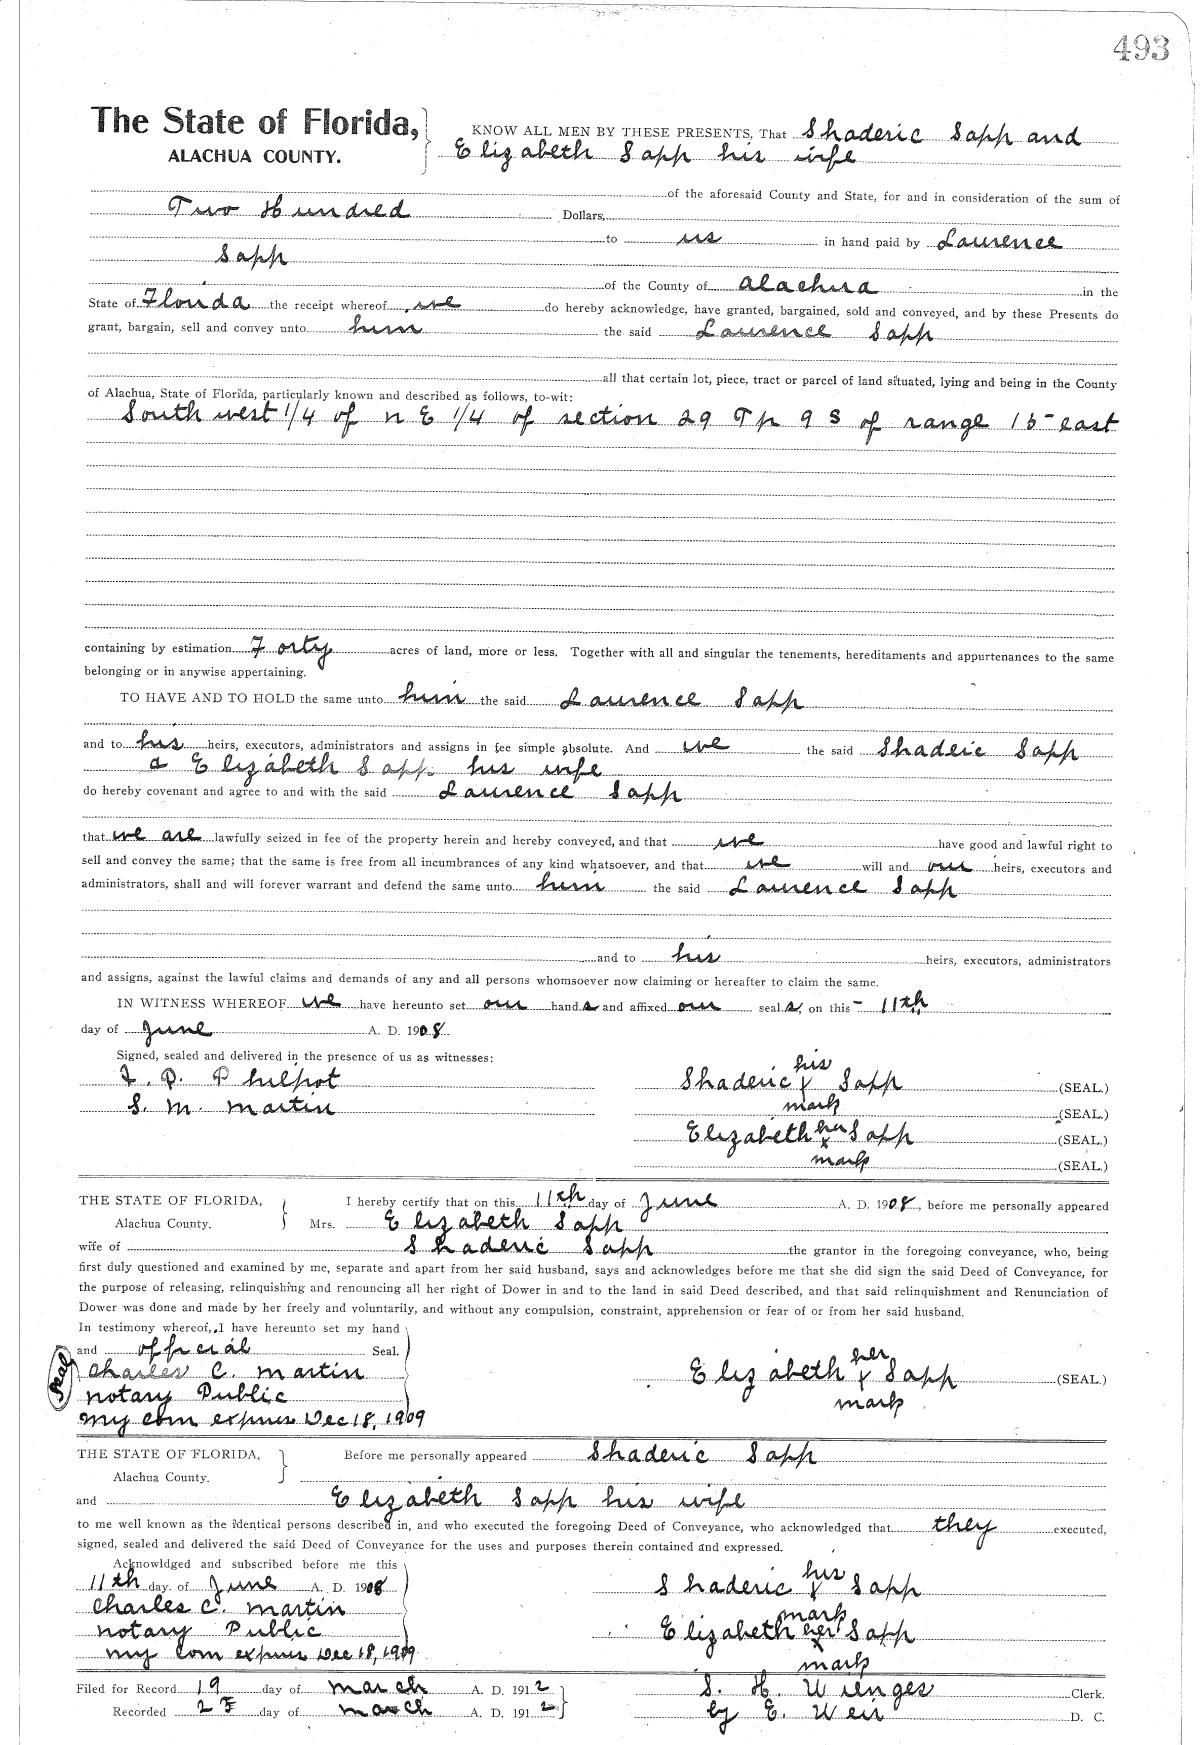 493
The State of Florida, KNOW ALL MEN BY THESE PRESENTS, That Shaderic Sapp and
ALACHUA COUNTY. Elizabeth Sapp his wife
of the aforesaid County and State, for and in consideration of the sum of
Two Hundred Dollars,
to us in hand paid by Laurence
Sapp
of the County of Alachua in the
State of Florida the receipt whereof we do hereby acknowledge, have granted, bargained, sold and conveyed, and by these Presents do
grant, bargain, sell and convey unto him the said Laurence Sapp
all that certain lot, piece, tract or parcel of land situated, lying and being in the County
of Alachua, State of Florida, particularly known and described as follows, to-wit:
South west 1/4 of n E 1/4 of section 29 Tp 9 S of range 15 east
containing by estimation Forty acres of land, more or less. Together with all and singular the tenements, hereditaments and appurtenances to the same
belonging or in anywise appertaining.
TO HAVE AND TO HOLD the same unto him the said Laurence Sapp
and to his heirs, executors, administrators and assigns in fee simple absolute. And we the said Shaderic Sapp
a Elizabeth Sapp his wife
do hereby covenant and agree to and with the said Laurence Sapp
that we are lawfully seized in fee of the property herein and hereby conveyed, and that we have good and lawful right to
sell and convey the same; that the same is free from all incumbrances of any kind whatsoever, and that we will and our heirs, executors and
administrators, shall and will forever warrant and defend the same unto him the said Laurence Sapp
and to his heirs, executors, administrators
and assigns, against the lawful claims and demands of any and all persons whomsoever now claiming or hereafter to claim the same.
IN WITNESS WHEREOF we have hereunto set our hands and affixed our seals, on this 11th
day of June A. D. 1908.
Signed, sealed and delivered in the presence of us as witnesses:
his
P Philpot Shaderic x Sapp (SEAL.)
S. M. Martin mark (SEAL.)
Elizabeth her x Sapp (SEAL.)
mark (SEAL.)
THE STATE OF FLORIDA, I hereby certify that on this 11th day of June A. D. 1908, before me personally appeared
Alachua County. Mrs. Elizabeth Sapp
wife of Shaderic Sapp the grantor in the foregoing conveyance, who, being
first duly questioned and examined by me, separate and apart from her said husband, says and acknowledges before me that she did sign the said Deed of Conveyance, for
the purpose of releasing, relinquishing and renouncing all her right of Dower in and to the land in said Deed described, and that said relinquishment and Renunciation of
Dower was done and made by her freely and voluntarily, and without any compulsion, constraint, apprehension or fear of or from her said husband.
In testimony whereof, I have hereunto set my hand
and official Seal.
Seal Charles C. Martin Elizabeth her x Sapp (SEAL.)
notary Public mark
my com expires Dec 18, 1909
THE STATE OF FLORIDA, Before me personally appeared Shaderic Sapp
Alachua County.
and Elizabeth Sapp his wife
to me well known as the identical persons described in, and who executed the foregoing Deed of Conveyance, who acknowledged that they executed,
signed, sealed and delivered the said Deed of Conveyance for the uses and purposes therein contained and expressed.
Acknowldged and subscribed before me this
11th day of June A. D. 1908 Shaderic his x Sapp
Charles C. Martin mark
notary Public Elizabeth her x Sapp
my Com expires Dec 18, 1909 mark
Filed for Record 19 day of March A. D. 1912 S. H. Wienges Clerk.
Recorded day of March A. D. 1912 by E. Weir D. C.